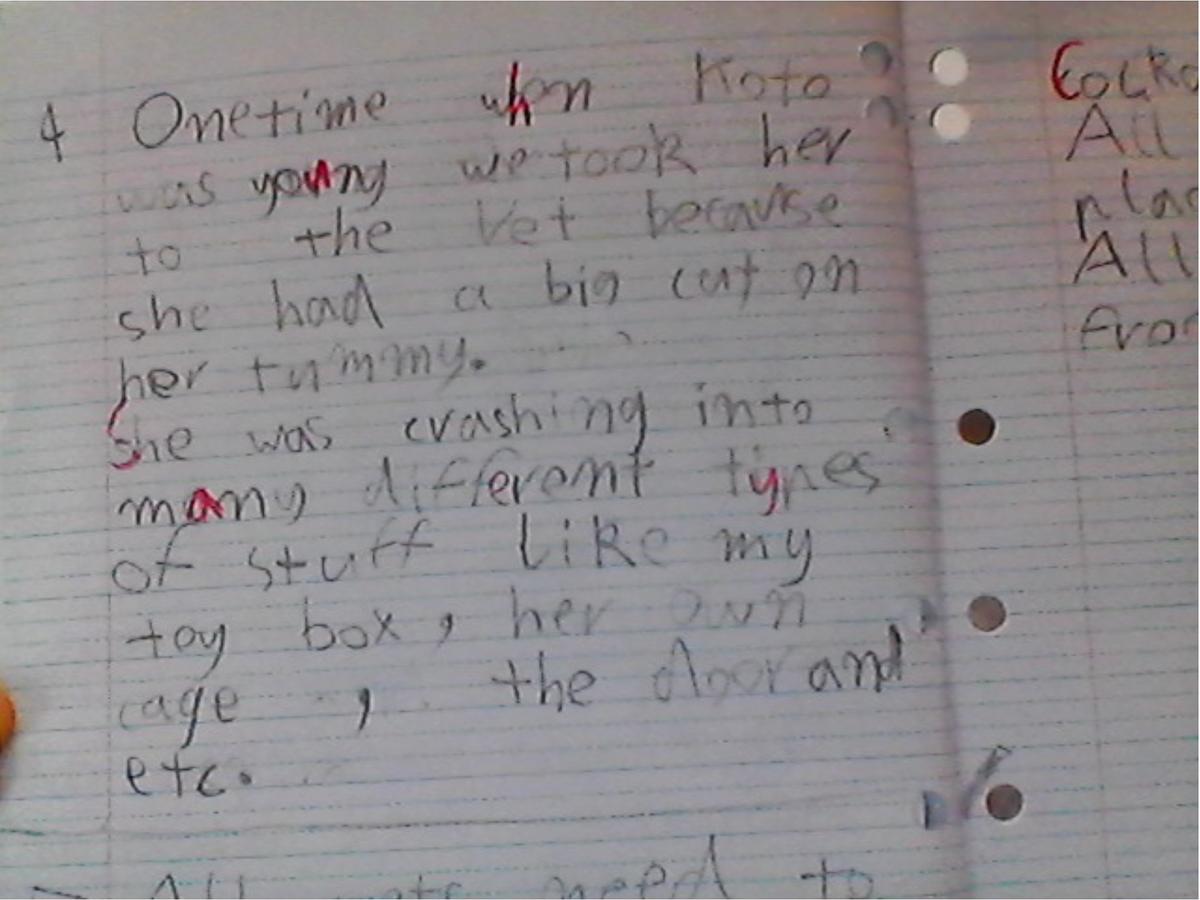 4 Onetime when Koto
was young we took her
to the vet because
she had a big cut on
her tummy.
She was crashing into
many different types
of stuff like my
toy box, her own
cage , the door and
etc.
All need to
Cocko
All
All